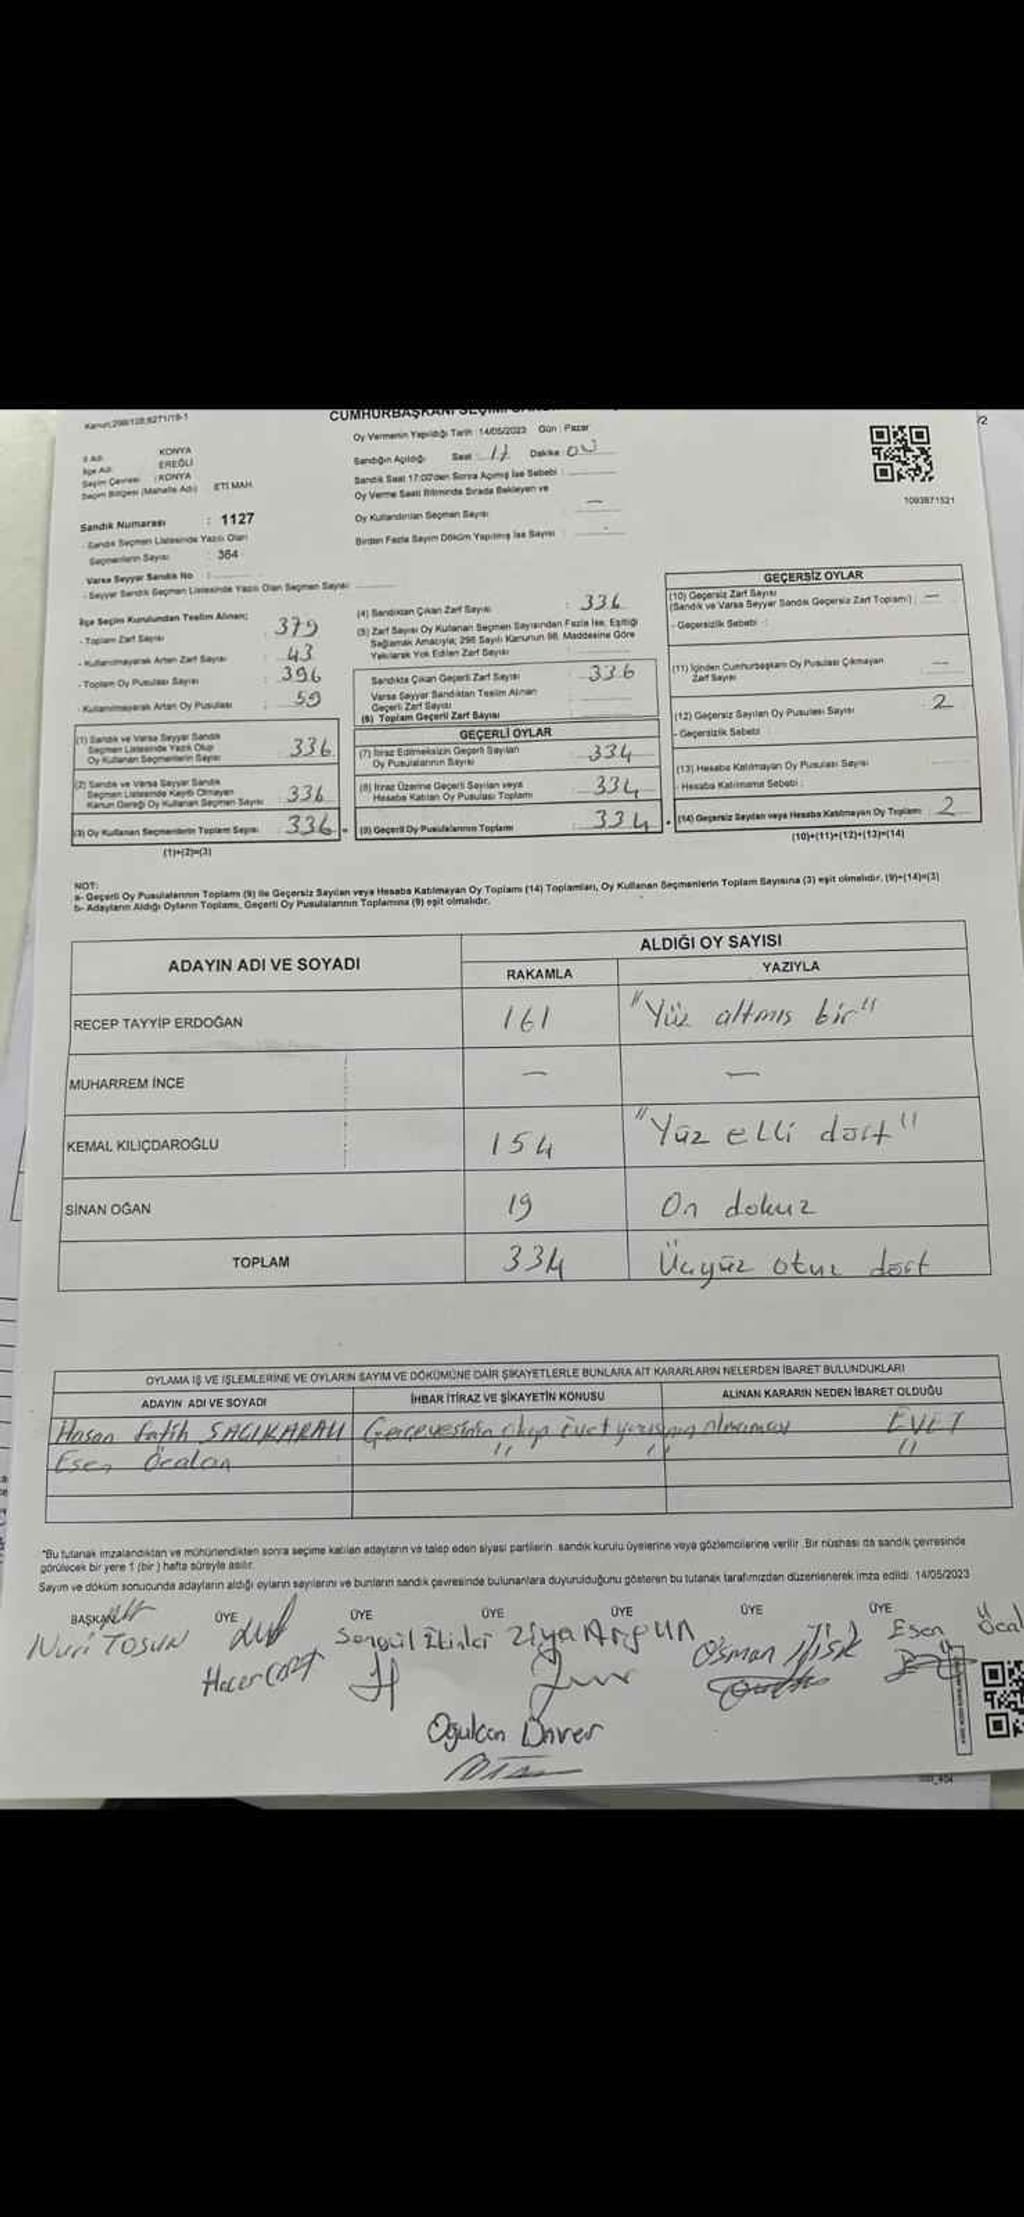 Kanun;298/128;6271/19-1
CUMHURBAŞKANI SEÇİMİ
/2
Oy Vermenin Yapıldığı Tarih : 14/05/2023 Gün : Pazar
İl Adı : KONYA
İlçe Adı : EREĞLİ
Seçim Çevresi : KONYA
Seçim Bölgesi (Mahalle Adı) : ETİ MAH.
Sandığın Açıldığı Saat : 17 Dakika : 00
Sandık Saat 17:00'den Sonra Açılmış İse Sebebi :
Oy Verme Saati Bitiminde Sırada Bekleyen ve
Oy Kullandırılan Seçmen Sayısı —
Birden Fazla Sayım Döküm Yapılmış İse Sayısı :
1093871521
Sandık Numarası : 1127
- Sandık Seçmen Listesinde Yazılı Olan
Seçmenlerin Sayısı : 364
Varsa Seyyar Sandık No :
- Seyyar Sandık Seçmen Listesinde Yazılı Olan Seçmen Sayısı :
İlçe Seçim Kurulundan Teslim Alınan;
- Toplam Zarf Sayısı : 379
- Kullanılmayarak Artan Zarf Sayısı : 43
- Toplam Oy Pusulası Sayısı : 396
- Kullanılmayarak Artan Oy Pusulası :
(1) Sandık ve Varsa Seyyar Sandık
Seçmen Listesinde Yazılı Olup
Oy Kullanan Seçmenlerin Sayısı : 336
(2) Sandık ve Varsa Seyyar Sandık
Seçmen Listesinde Kayıtlı Olmayan
Kanun Gereği Oy Kullanan Seçmen Sayısı : 336
(3) Oy Kullanan Seçmenlerin Toplam Sayısı : 336 =
(1)+(2)=(3)
(4) Sandıktan Çıkan Zarf Sayısı : 336
(5) Zarf Sayısı Oy Kullanan Seçmen Sayısından Fazla İse, Eşitliği
Sağlamak Amacıyla; 298 Sayılı Kanunun 98. Maddesine Göre
Yakılarak Yok Edilen Zarf Sayısı
Sandıkta Çıkan Geçerli Zarf Sayısı : 336
Varsa Seyyar Sandıktan Teslim Alınan
Geçerli Zarf Sayısı
(6) Toplam Geçerli Zarf Sayısı
GEÇERLİ OYLAR
(7) İtiraz Edilmeksizin Geçerli Sayılan
Oy Pusulalarının Sayısı : 334
(8) İtiraz Üzerine Geçerli Sayılan veya
Hesaba Katılan Oy Pusulası Toplamı : 334
(9) Geçerli Oy Pusulalarının Toplamı : 334 +
GEÇERSİZ OYLAR
(10) Geçersiz Zarf Sayısı
(Sandık ve Varsa Seyyar Sandık Geçersiz Zarf Toplamı) : —
- Geçersizlik Sebebi :
(11) İçinden Cumhurbaşkanı Oy Pusulası Çıkmayan
Zarf Sayısı —
(12) Geçersiz Sayılan Oy Pusulası Sayısı : 2
- Geçersizlik Sebebi :
(13) Hesaba Katılmayan Oy Pusulası Sayısı :
- Hesaba Katılmama Sebebi :
(14) Geçersiz Sayılan veya Hesaba Katılmayan Oy Toplamı : 2
(10)+(11)+(12)+(13)=(14)
NOT:
a- Geçerli Oy Pusulalarının Toplamı (9) ile Geçersiz Sayılan veya Hesaba Katılmayan Oy Toplamı (14) Toplamları, Oy Kullanan Seçmenlerin Toplam Sayısına (3) eşit olmalıdır. (9)+(14)=(3)
b- Adayların Aldığı Oyların Toplamı, Geçerli Oy Pusulalarının Toplamına (9) eşit olmalıdır.
ADAYIN ADI VE SOYADI
ALDIĞI OY SAYISI
RAKAMLA YAZIYLA
RECEP TAYYİP ERDOĞAN 161 "Yüz altmış bir"
MUHARREM İNCE — —
KEMAL KILIÇDAROĞLU 154 "Yüz elli dört"
SİNAN OĞAN 19 On dokuz
TOPLAM 334 Üçyüz otuz dört
OYLAMA İŞ VE İŞLEMLERİNE VE OYLARIN SAYIM VE DÖKÜMÜNE DAİR ŞİKAYETLERLE BUNLARA AİT KARARLARIN NELERDEN İBARET BULUNDUKLARI
ADAYIN ADI VE SOYADI İHBAR İTİRAZ VE ŞİKAYETİN KONUSU ALINAN KARARIN NEDEN İBARET OLDUĞU
Hasan Fatih SAĞIKARALI Çerçevesinin olup Evet yazısının olmaması EVET
Esen Öcalan " " "
"Bu tutanak imzalandıktan ve mühürlendikten sonra seçime katılan adayların ve talep eden siyasi partilerin sandık kurulu üyelerine veya gözlemcilerine verilir. Bir nüshası da sandık çevresinde
görülecek bir yere 1 (bir) hafta süreyle asılır.
Sayım ve döküm sonucunda adayların aldığı oyların sayılarını ve bunların sandık çevresinde bulunanlara duyurulduğunu gösteren bu tutanak tarafımızdan düzenlenerek imza edildi. 14/05/2023
BAŞKAN ÜYE ÜYE ÜYE ÜYE ÜYE ÜYE
Nuri TOSUN Songül Ziya Argun Osman Işık Esen Öcal
Hacer
Oğulcan Ünver